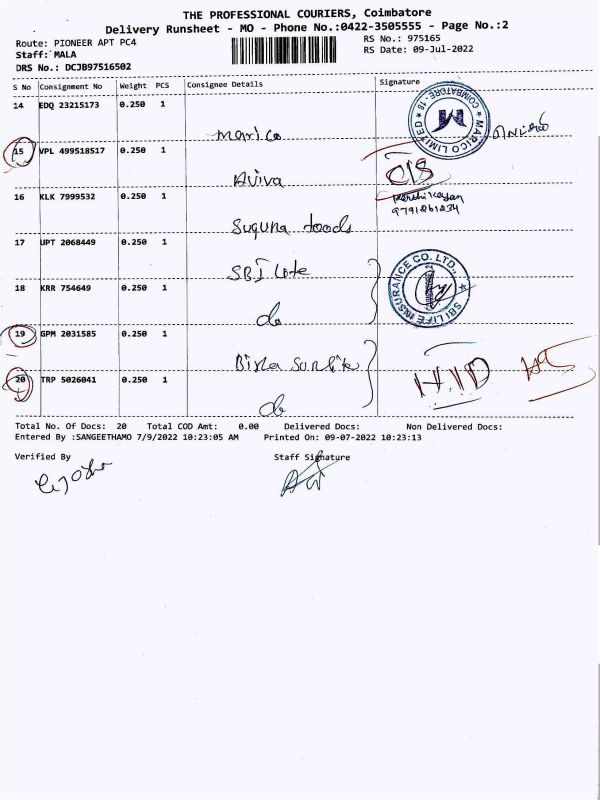 THE PROFESSIONAL COURIERS, Coimbatore
Delivery Runsheet - MO - Phone No.:0422-3505555 - Page No.:2
Route: PIONEER APT PC4
RS No.: 975165
Staff: MALA
RS Date: 09-Jul-2022
DRS No.: DCJB97516502
S No Consignment No Weight PCS Consignee Details Signature
14 EDQ 23215173 0.250 1
Marico
MARICO LIMITED ★ COIMBATORE - 18 ★
15 VPL 499518517 0.250 1
Aviva
16 KLK 7999532 0.250 1
9791261234
Suguna foods
17 UPT 2068449 0.250 1
SBI Life
SBI LIFE INSURANCE CO. LTD.,
18 KRR 754649 0.250 1
do
19 GPM 2031585 0.250 1
Birla Sunlife
20 TRP 5026041 0.250 1
do
Total No. Of Docs: 20 Total COD Amt: 0.00 Delivered Docs: Non Delivered Docs:
Entered By :SANGEETHAMO 7/9/2022 10:23:05 AM Printed On: 09-07-2022 10:23:13
Verified By Staff Signature